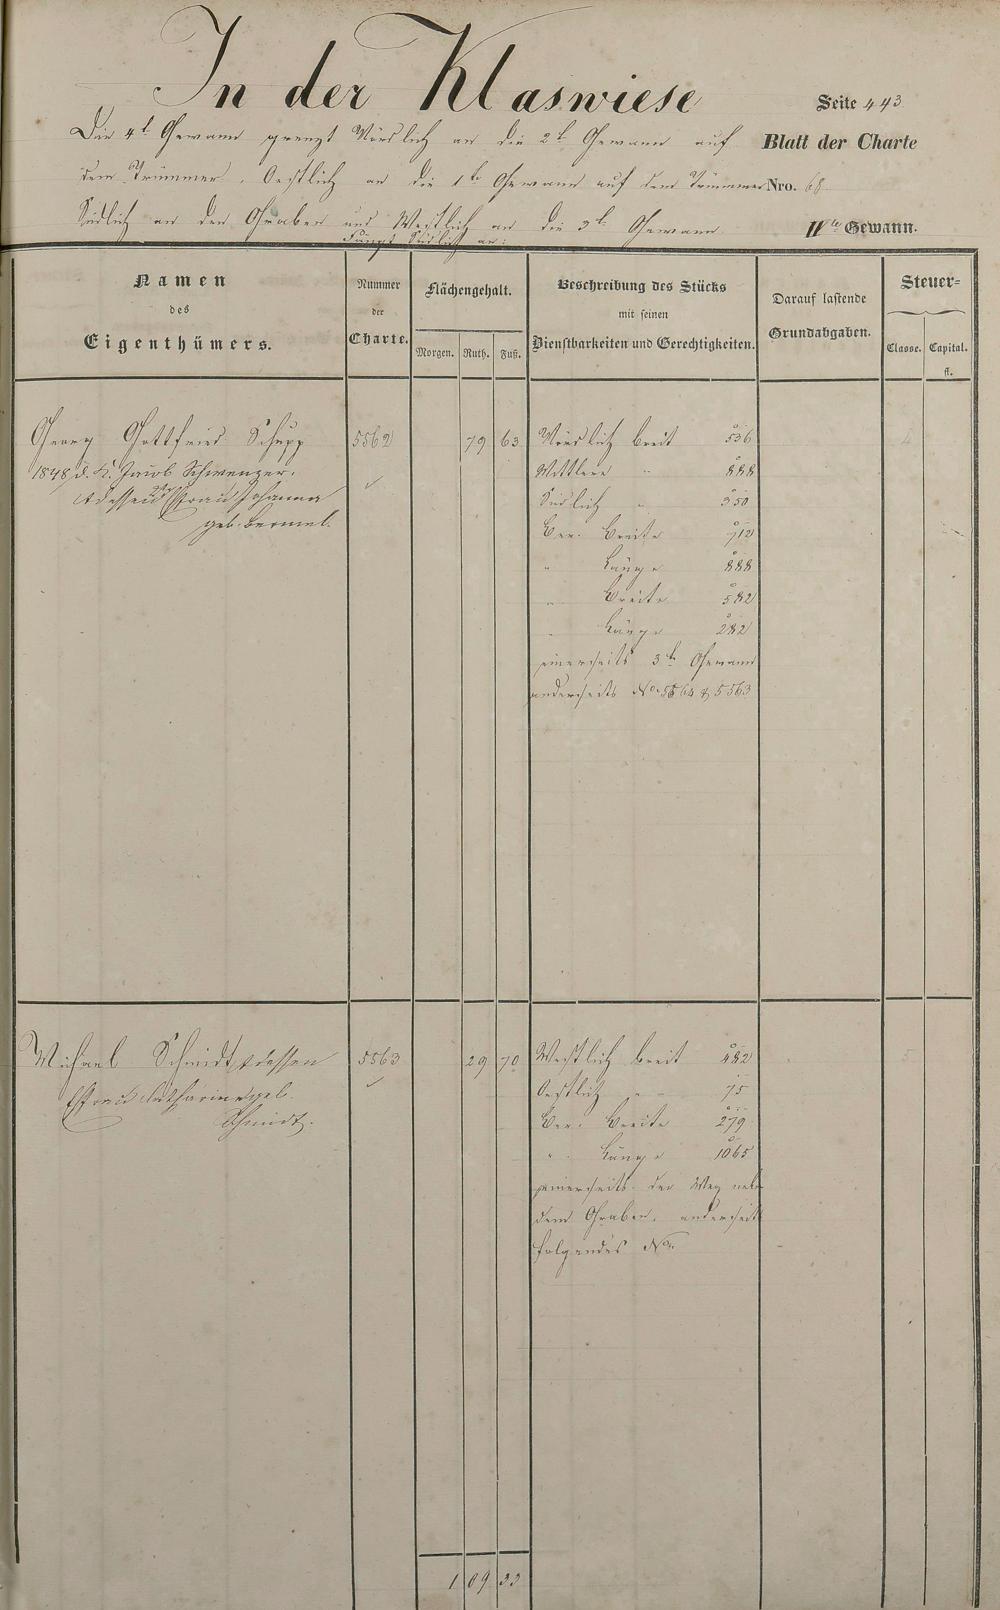 In der Klaswiese
Seite 443
Die 4te Gewann grenzt Nördlich an die 2te Gewann auf
Blatt der Charte
dem Trümmer, Oestlich an die 1te Gewann auf dem Trümmer
Nro. 68
Südlich an den Graben und Westlich an die 3te Gewann
fängt Südlich an:
IVte Gewann.
Namen
des
Eigenthümers.
Nummer
der
Charte.
Flächengehalt.
Morgen. Ruth. Fuß.
Beschreibung des Stücks
mit seinen
Dienstbarkeiten und Gerechtigkeiten.
Darauf lastende
Grundabgaben.
Steuer=
Classe. Capital.
fl.
Georg Gottfried Schupp 5562 79 63 Nördlich breit 536
1848 d. K. Jacob Schwenzer. Mittlere " 888
Südlich " 350
geb. Bermel. Ber. Breite 712
" Länge 888
" Breite 582
" Länge 282
einerseits 3te Gewann
anderseits No. 5564 & 5563
Michael Schmidt & dessen 5563 29 70 Westlich breit 482
Ehefrau Catharine geb. Oestlich " 75
Schmidt. Ber. Breite 279
" Länge 1065
einerseits der Weg neben
dem Graben, anderseits
folgendes No.
1 09 33